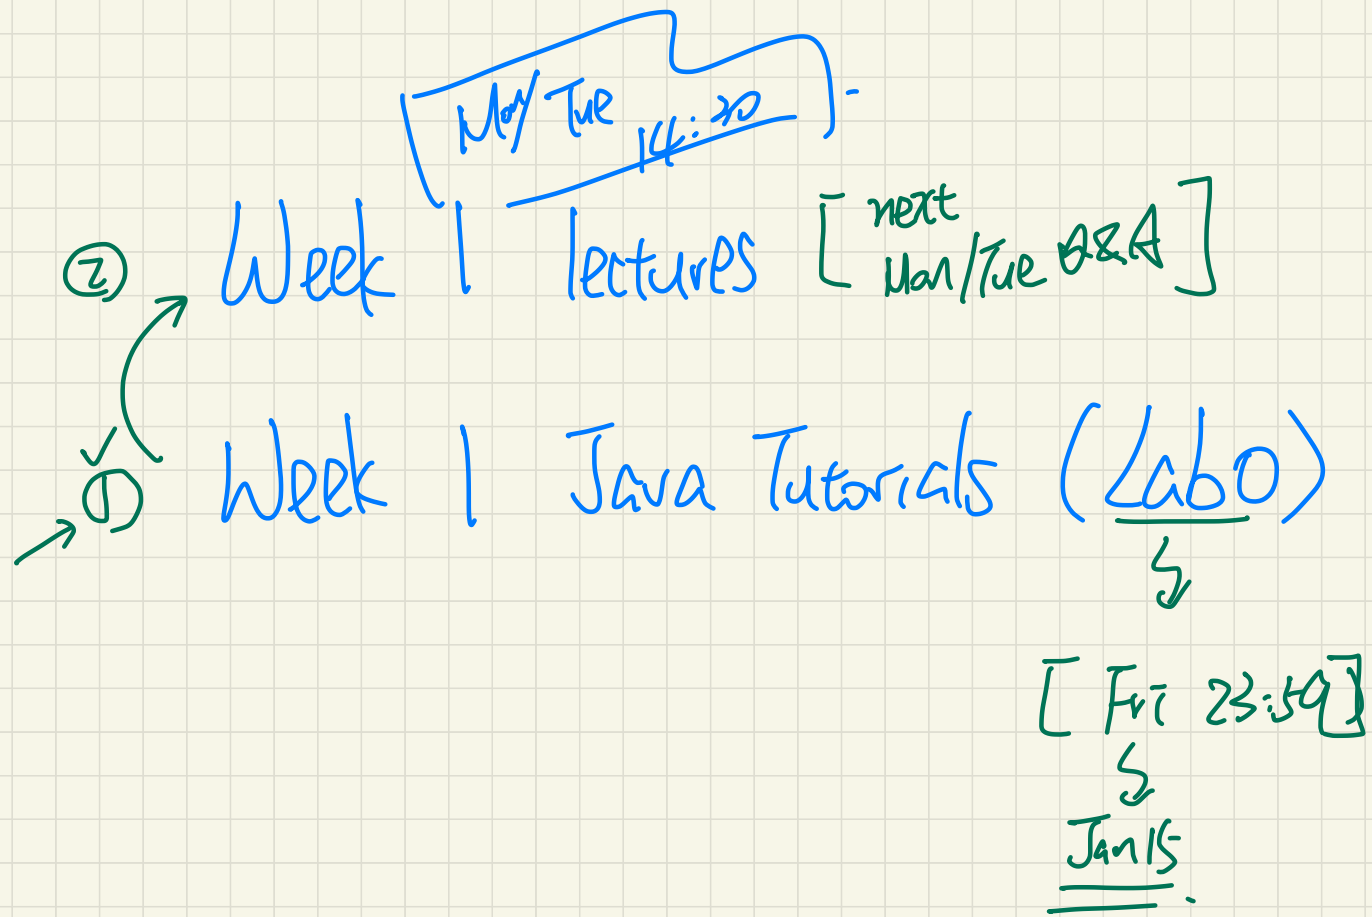 Mon/Tue 14:30
② Week 1 lectures [next Mon/Tue Q&A]
① Week 1 Java Tutorials (Lab0)
[Fri 23:59]
Jan 15